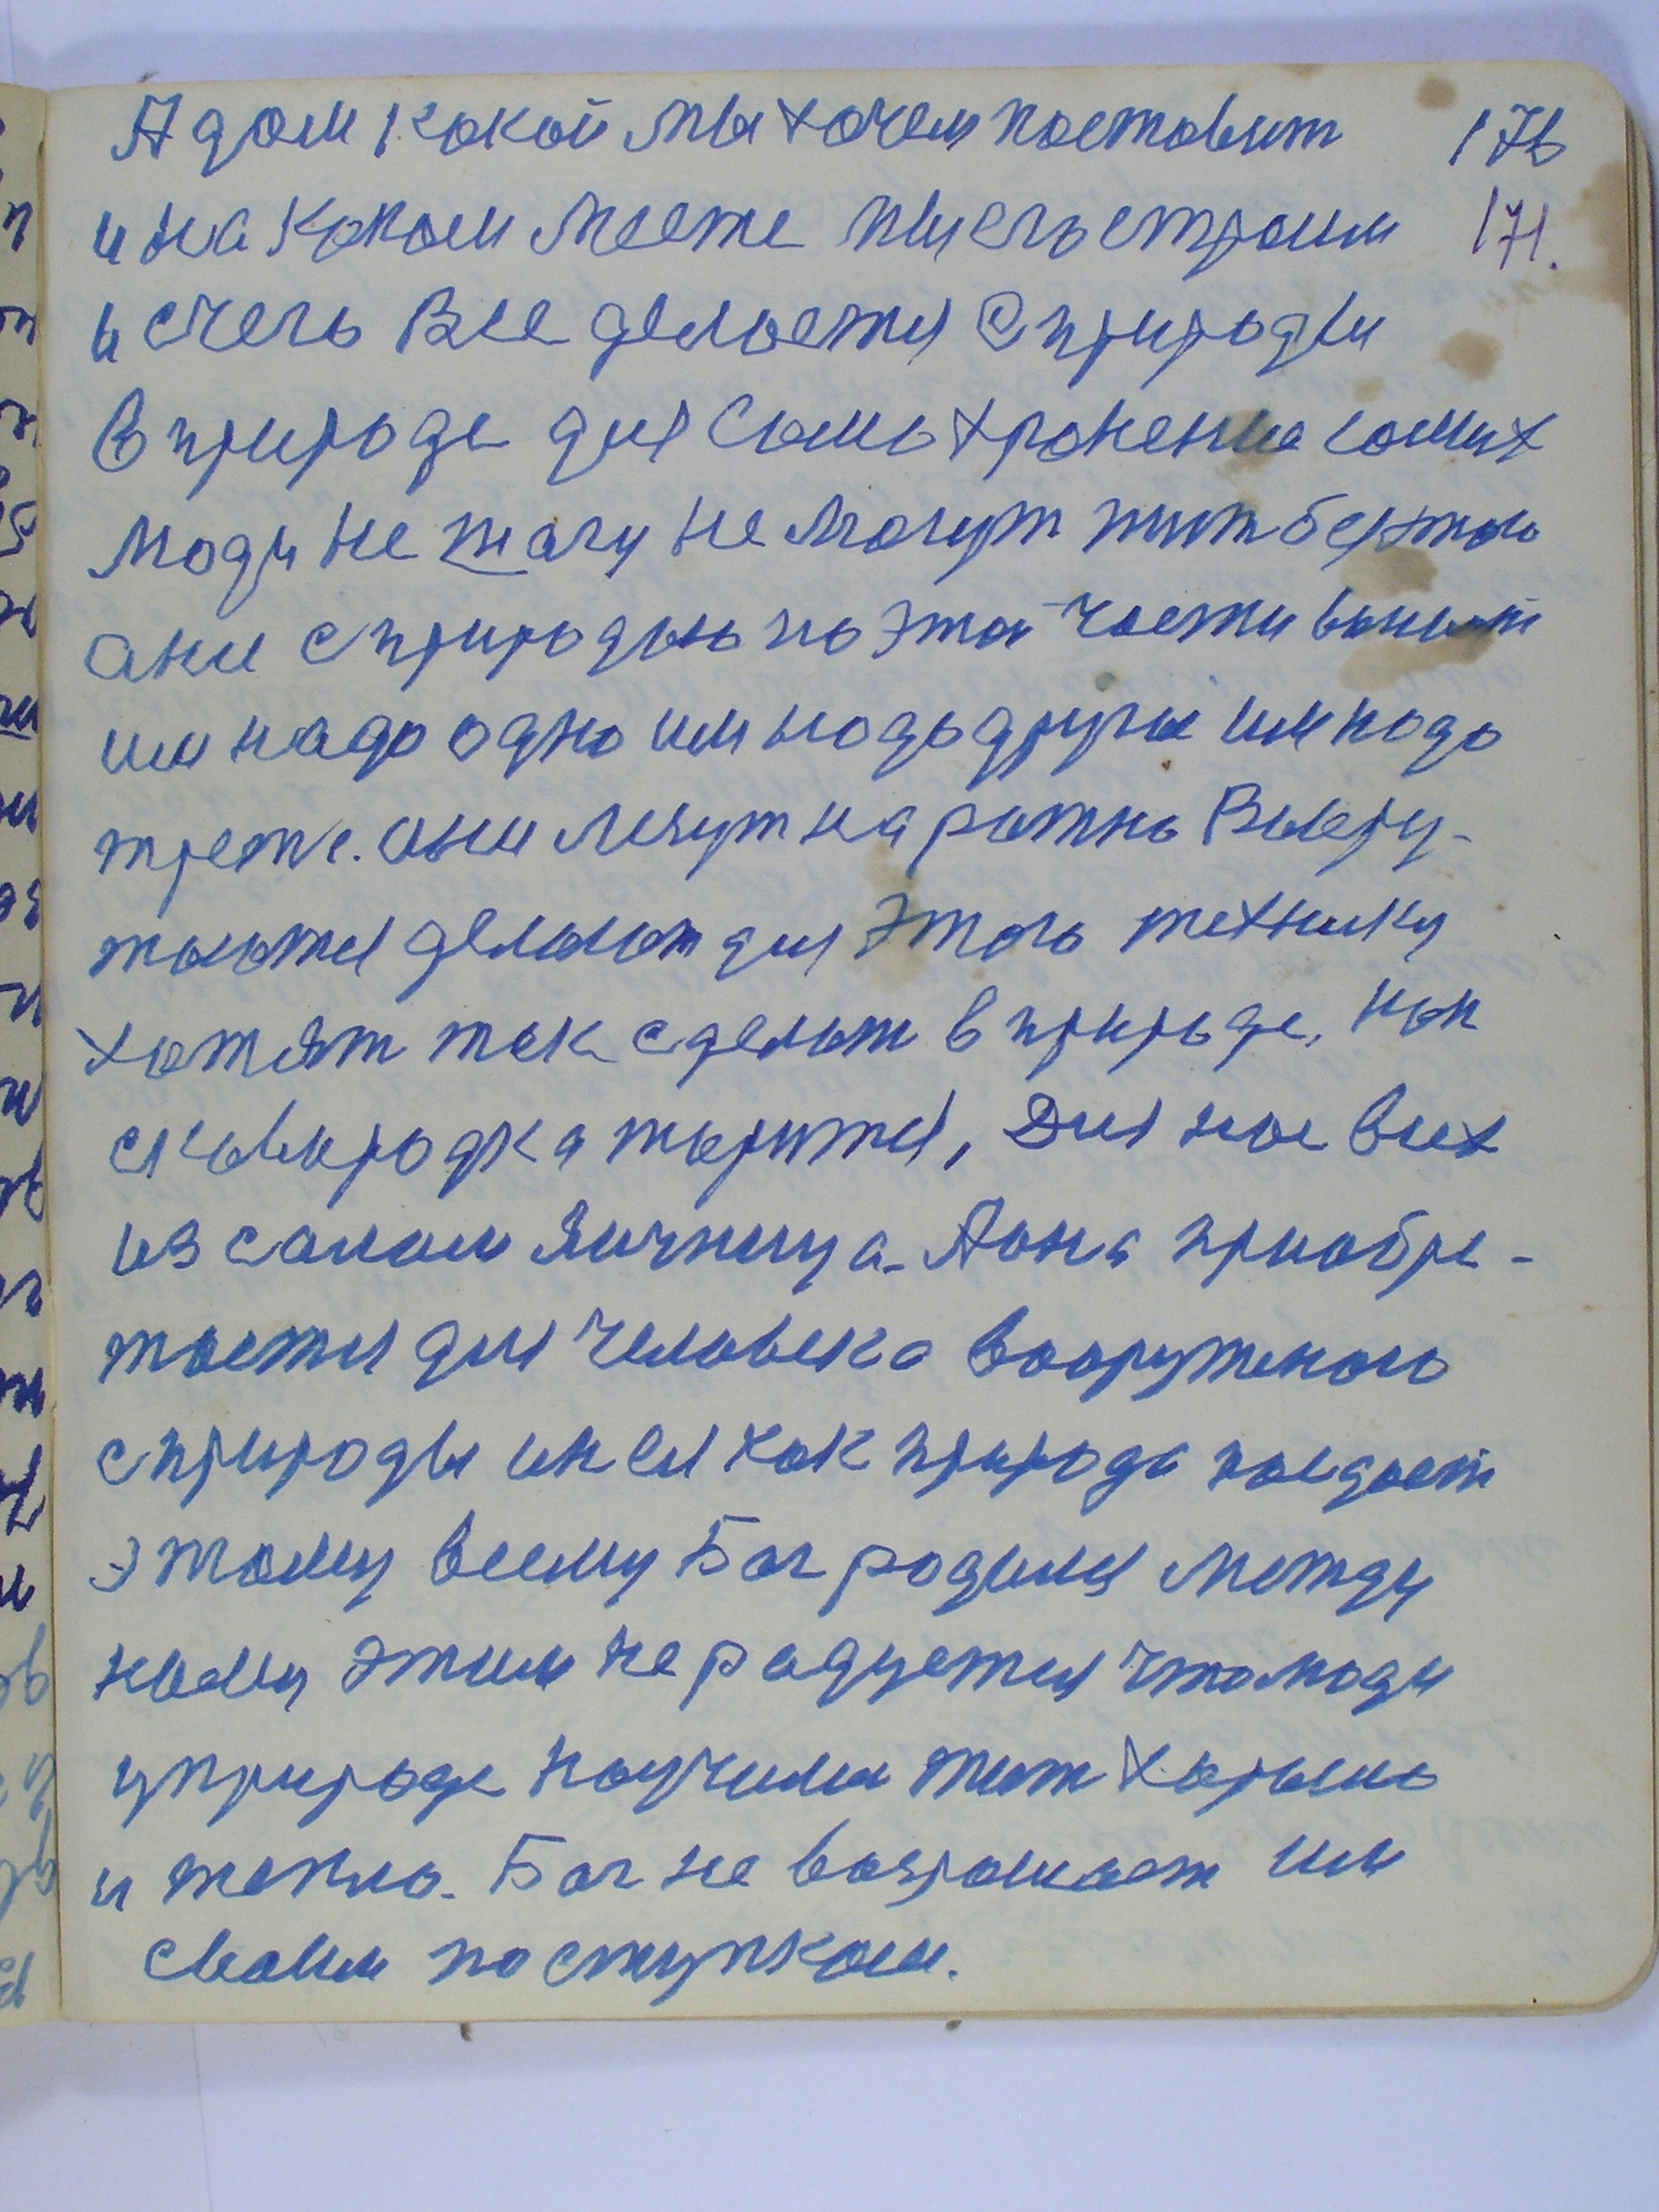 А дом какой мы хочем поставит 176
и на каком месте мы его строим 171.
и счего Все делается с природы
в природе для Само хронение самих
люди не могу не могут жит без того
они с природою по этай части воюют
им надо одно им надо другое им надо
трете. они лезут на ражно Выкру-
таются делают для этого технику
хотят так сделат в природе, как
сковыродка жарится, Для нас всех
из салом Яичница. А она приобре-
тается для человека вооруженого
с природы он ей как природа поедает
этому всему Бог родился между
нами этим не радуется что люди
у природе научилися жит хорошо
и тепло. Бог не возрожает им
своим поступкам.